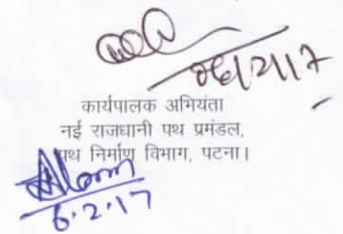 कार्यपालक अभियंता
नई राजधानी पथ प्रमंडल,
पथ निर्माण विभाग, पटना।
6.2.17